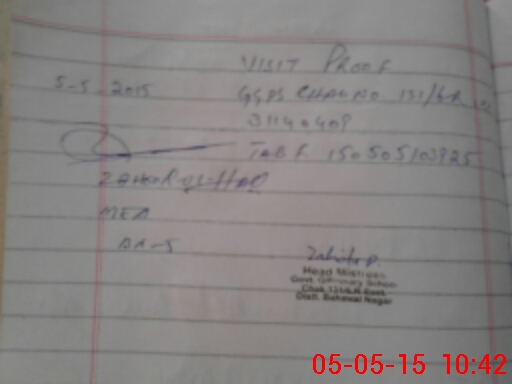 VISIT PROOF
5-5-2015
GGPS CHAK NO 131/6-R
31140409
TAB # 150505103925
ZAHOOR-UL-HAQ
MEA
Head Mistress
Govt. G/Primary School
Chak 131/6.R
Distt. Bahawal Nagar
05-05-15 10:42